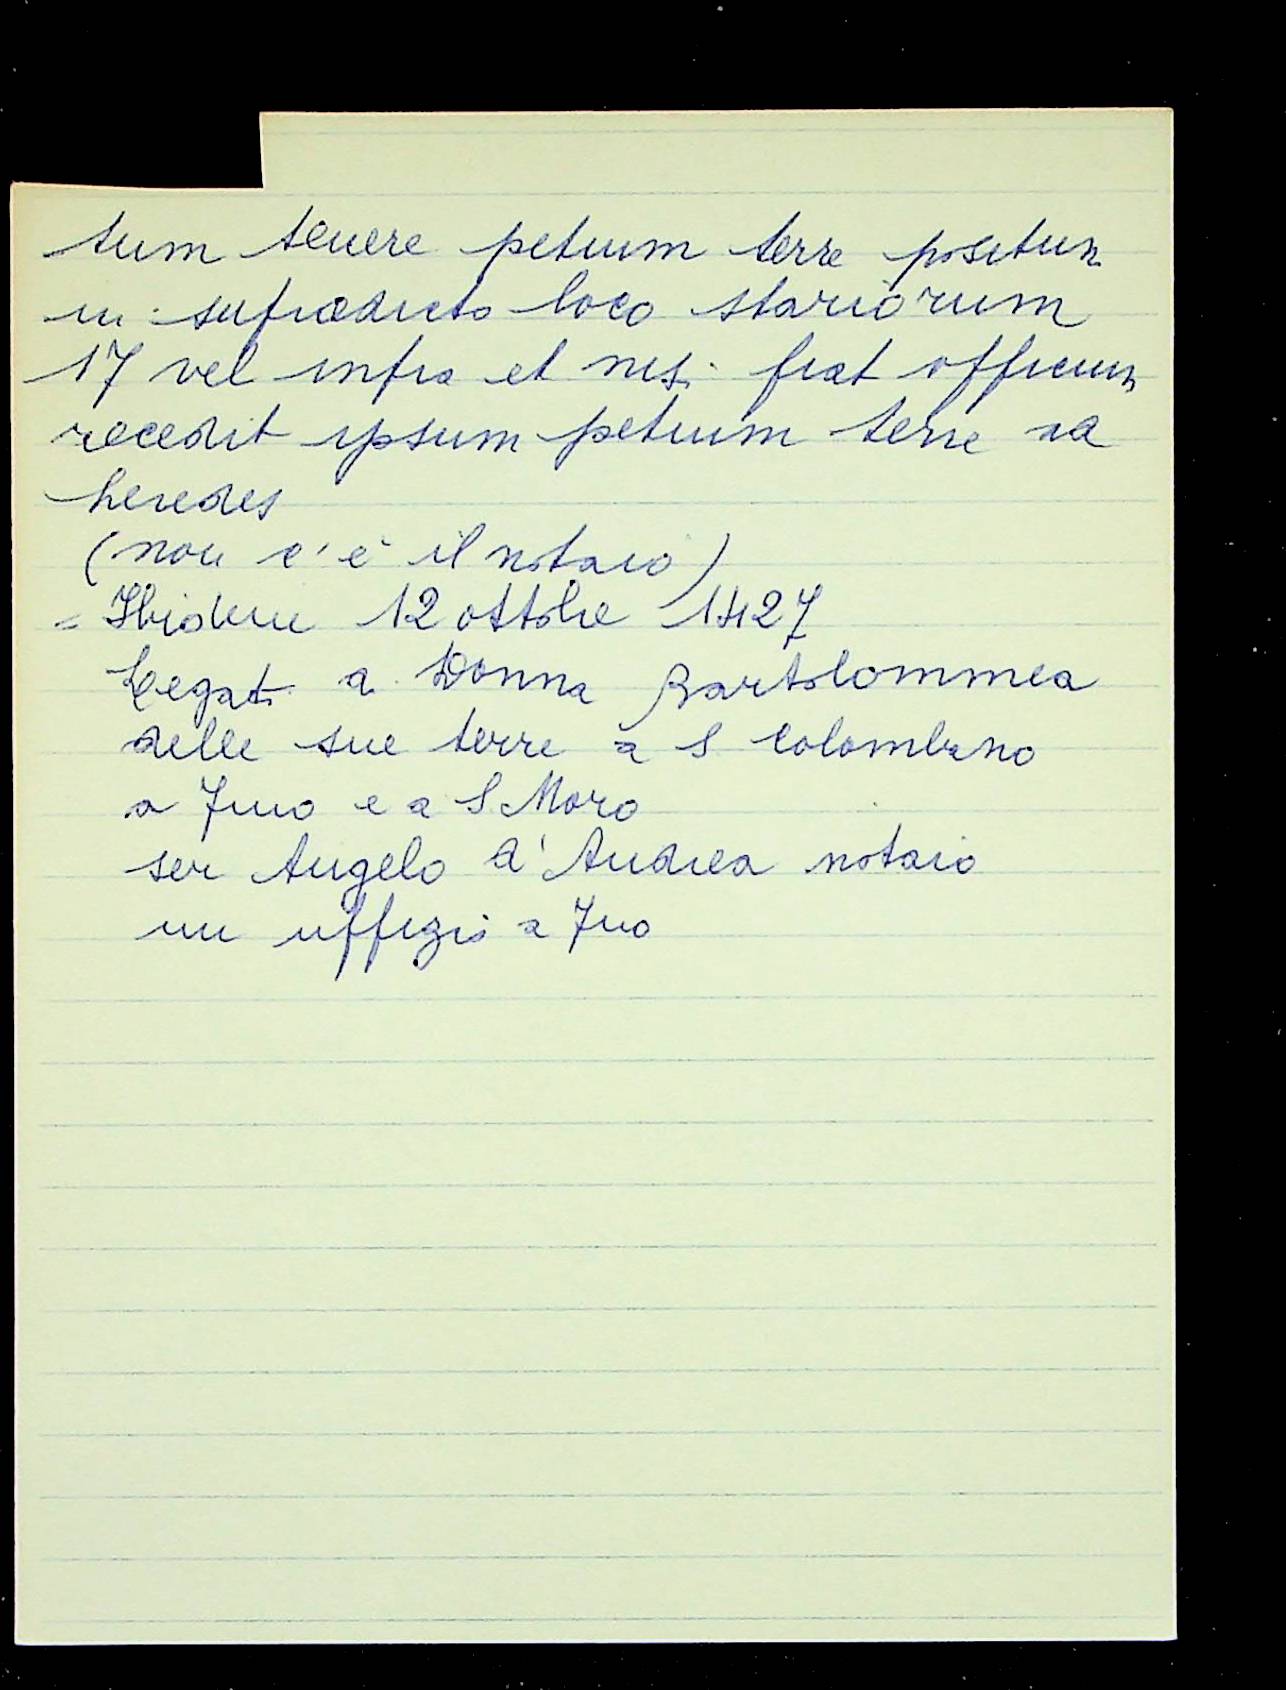 tum tenere petium terre positum
in supradicto loco stariorum
17 vel infra et nisi fiat officium
recedit ipsum petium terre ad
heredes
(non c'è il notaio)
= Ibidem 12 ottobre 1427
Legati a Donna Bartolommea
delle sue terre a S Colombano
a 7mo e a S Moro
ser Angelo d'Andrea notaio
un uffizio a 7mo